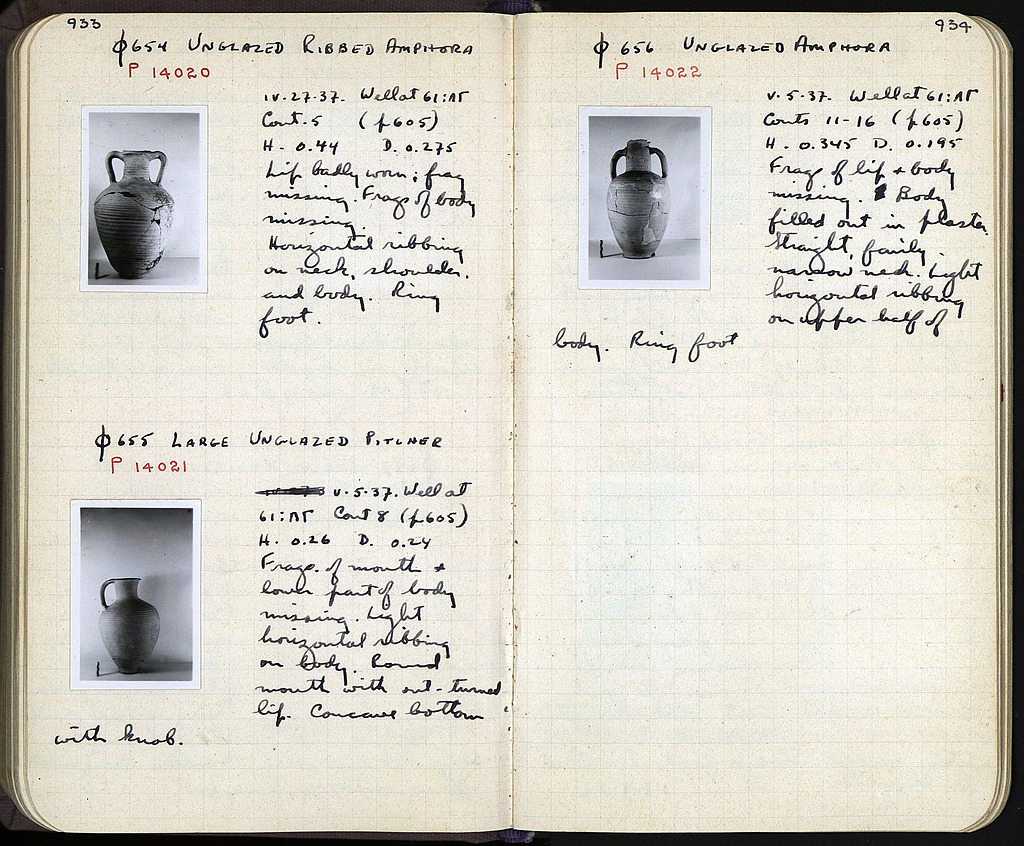 933
φ654 UNGLAZED RIBBED AMPHORA
P 14020
IV.27.37. Well at 61:ΛΓ
Cont. 5 (p605)
H. 0.44 D. 0.275
Lip badly worn; frag
missing. Frags of body
missing.
Horizontal ribbing
on neck, shoulder,
and body. Ring
foot.
φ655 LARGE UNGLAZED PITCHER
P 14021
V.5.37. Well at
61:ΛΓ Cont 8 (p605)
H. 0.26 D. 0.24
Frags. of mouth &
lower part of body
missing. Light
horizontal ribbing
on body. Round
mouth with out-turned
lip. Concave bottom
with knob.
934
φ 656 UNGLAZED AMPHORA
P 14022
V.5.37. Well at 61:ΛΓ
Conts 11-16 (p605)
H. 0.345 D. 0.195
Frags of lip & body
missing. Body
filled out in plaster.
Straight, fairly
narrow neck. Light
horizontal ribbing
on upper half of
body. Ring foot